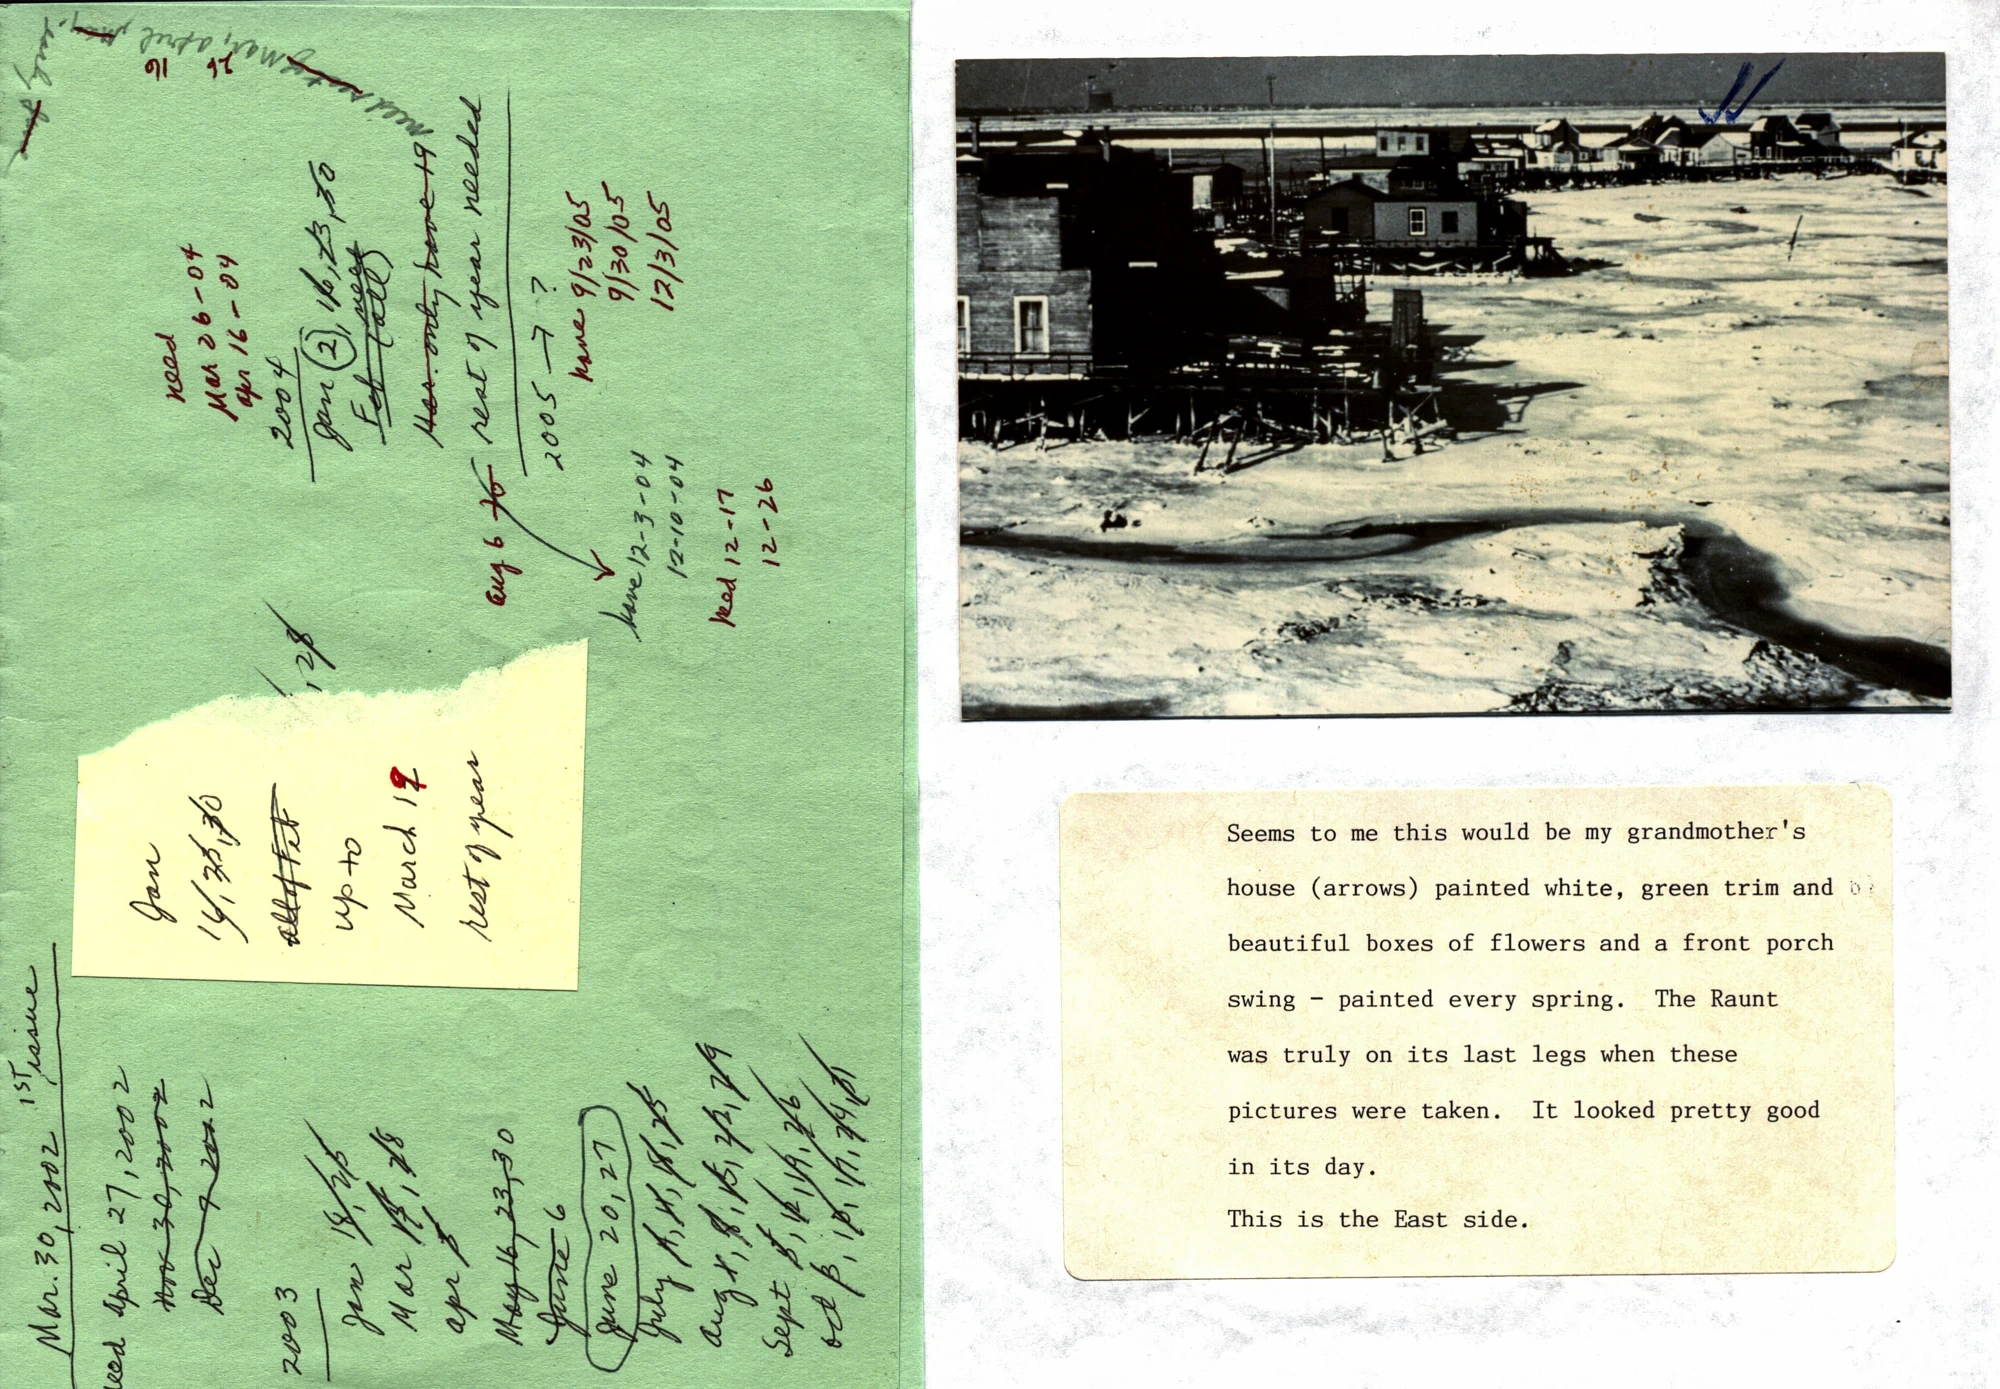 Mar. 30, 2002 1ST issue
need April 27, 2002
Nov 30, 2002
Dec 7 2002
2003
Jan 18, 25
Mar
28
apr
May 16, 23, 30
June 6
June 20, 27
July
18, 25
Aug
8, 15, 22, 29
Sept 5, 12, 19, 26
Oct
17, 24, 31
Jan
16, 23, 30
all of Feb
up to
March 19
rest of year
, 28
need
Mar 26-04
apr 16-04
2004
Jan 2, 16, 23, 30
Feb (all) need
Mar. only have 19
aug 6 to rest of year needed
2005 → ?
have 9/23/05
9/30/05
12/3/05
have 12-3-04
12-10-04
need 12-17
12-26
Mar, april
Seems to me this would be my grandmother's
house (arrows) painted white, green trim and
beautiful boxes of flowers and a front porch
swing - painted every spring. The Raunt
was truly on its last legs when these
pictures were taken. It looked pretty good
in its day.
This is the East side.